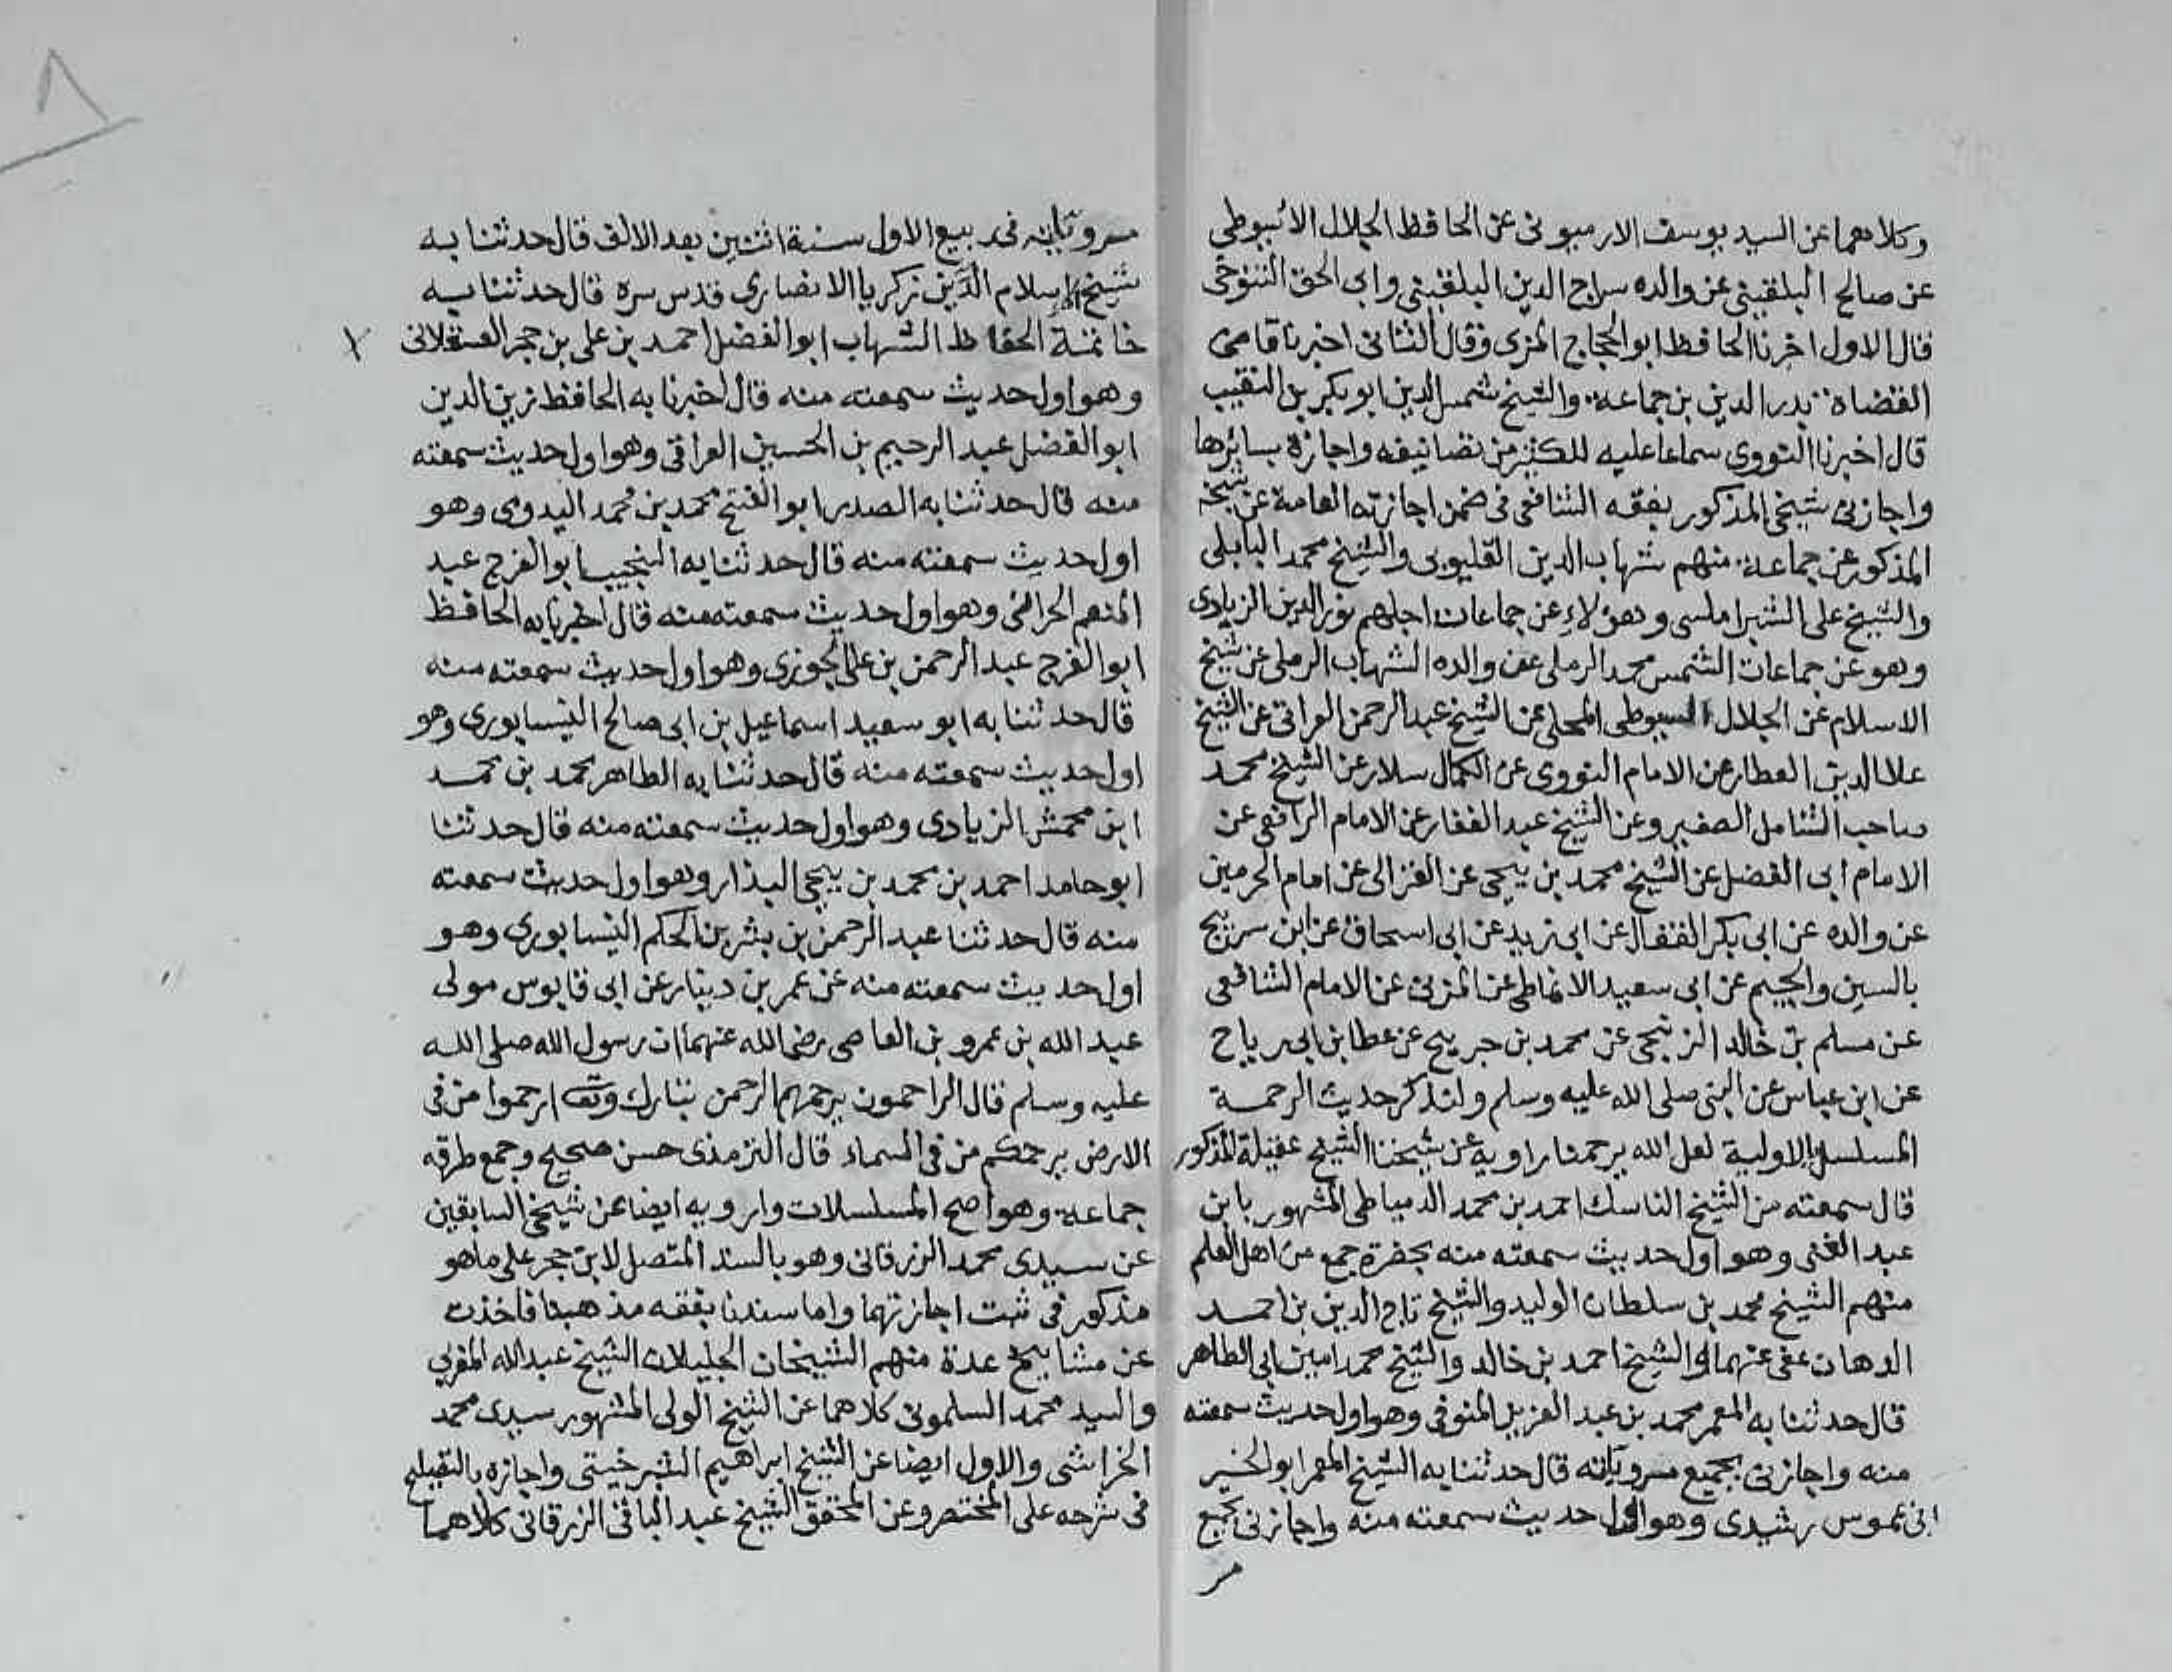 وكلاهما عن السيد يوسف الارميوني عن الحافظ الجلال الاسيوطي
عن صالح البلقيني عن والده سراج الدين البلقيني وابي الحق التنوخي
قال الاول اخبرنا الحافظ ابو الحجاج المزي وقال الثاني اخبرنا قاضي
القضاة بدر الدين بن جماعة والشيخ شمس الدين ابو بكر بن النقيب
قال اخبرنا النووي سماعا عليه للكثير من تصانيفه واجازة بسائرها
واجازني شيخي المذكور بفقه الشافعي في ضمن اجازته العامة عن شيخه
المذكور عن جماعة منهم شهاب الدين القليوبي والشيخ محمد البابلي
والشيخ علي الشبراملسي وهؤلاء عن جماعات اجلهم نور الدين الزيادي
وهو عن جماعات الشمس محمد الرملي عن والده الشهاب الرملي عن شيخ
الاسلام عن الجلال السيوطي المحلي عن الشيخ عبد الرحمن العراقي عن الشيخ
علا الدين العطار عن الامام النووي عن الكمال سلار عن الشيخ محمد
صاحب الشامل الصغير وعن الشيخ عبد الغفار عن الامام الرافعي عن
الامام ابي الفضل عن الشيخ محمد بن يحيى عن الغزالي عن امام الحرمين
عن والده عن ابي بكر القفال عن ابي زيد عن ابي اسحاق عن ابن سريج
بالسين والجيم عن ابي سعيد الانماطي عن المزني عن الامام الشافعي
عن مسلم بن خالد الزنجي عن محمد بن جريج عن عطا بن ابي رياح
عن ابن عباس عن النبي صلى الله عليه وسلم ولنذكر حديث الرحمة
المسلسل بالاولية لعل الله يرحمنا راويه عن شيخنا الشيخ عقيلة المذكور
قال سمعته من الشيخ الناسك احمد بن محمد الدمياطي المشهور بابن
عبد الغني وهو اول حديث سمعته منه بحضرة جمع من اهل العلم
منهم الشيخ محمد بن سلطان الوليد والشيخ تاج الدين بن احمد
الدهان عفى عنهما والشيخ احمد بن خالد والشيخ محمد امين ابي الطاهر
قال حدثنا به المعمر محمد بن عبد العزيز المنوفي وهو اول حديث سمعته
منه واجازني بجميع مروياته قال حدثنا به الشيخ المعمر ابو الخير
ابن عموس رشيدي وهو اول حديث سمعته منه واجازني بجميع
مر
مروياته في ربيع الاول سنة اثنين بعد الالف قال حدثنا به
شيخ الاسلام الدين زكريا الانصاري قدس سره قال حدثنا به
خاتمة الحفاظ الشهاب ابو الفضل احمد بن علي بن حجر العسقلاني
وهو اول حديث سمعته منه قال اخبرنا به الحافظ زين الدين
ابو الفضل عبد الرحيم بن الحسين العراقي وهو اول حديث سمعته
منه قال حدثنا به الصدر ابو الفتح محمد بن محمد البدوي وهو
اول حديث سمعته منه قال حدثنا به النجيب ابو الفرج عبد
المنعم الحراني وهو اول حديث سمعته منه قال اخبرنا به الحافظ
ابو الفرج عبد الرحمن بن علي الجوزي وهو اول حديث سمعته منه
قال حدثنا به ابو سعيد اسماعيل بن ابي صالح النيسابوري وهو
اول حديث سمعته منه قال حدثنا به الطاهر محمد بن محمد
ابن محمش الزيادي وهو اول حديث سمعته منه قال حدثنا
ابو حامد احمد بن محمد بن يحيى البذار وهو اول حديث سمعته
منه قال حدثنا عبد الرحمن بن بشر بن الحكم النيسابوري وهو
اول حديث سمعته منه عن عمر بن دينار عن ابي قابوس مولى
عبد الله بن عمرو بن العاصي رضي الله عنهما ان رسول الله صلى الله
عليه وسلم قال الراحمون يرحمهم الرحمن تبارك وتع ارحموا من في
الارض يرحمكم من في السماء قال الترمذي حسن صحيح وجمع طرقه
جماعة وهو اصح المسلسلات وارويه ايضا عن شيخي السابقين
عن سيدي محمد الزرقاني وهو بالسند المتصل لابن حجر على ما هو
مذكور في ثبت اجازتهما واما سندنا بفقه مذهبنا فاخذت
عن مشايخ عدة منهم الشيخان الجليلان الشيخ عبد الله المغربي
والسيد محمد السلموني كلاهما عن الشيخ الولي المشهور سيدي محمد
الخراشي والاول ايضا عن الشيخ ابراهيم الشبرخيتي واجازه بالتقييد
في شرحه على المختصر وعن المحقق الشيخ عبد الباقي الزرقاني كلاهما